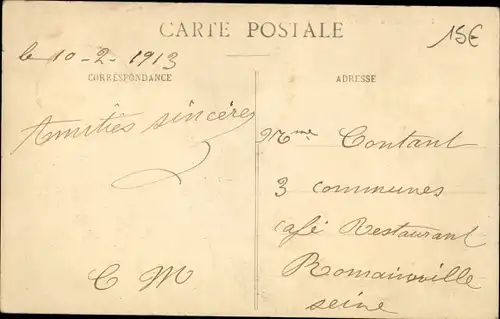 CARTE POSTALE
15€
le 10-2-1913
CORRESPONDANCE
ADRESSE
Amitiés sincères
Mme Contant
3 communes
café Restaurant
Romainville
seine
C M